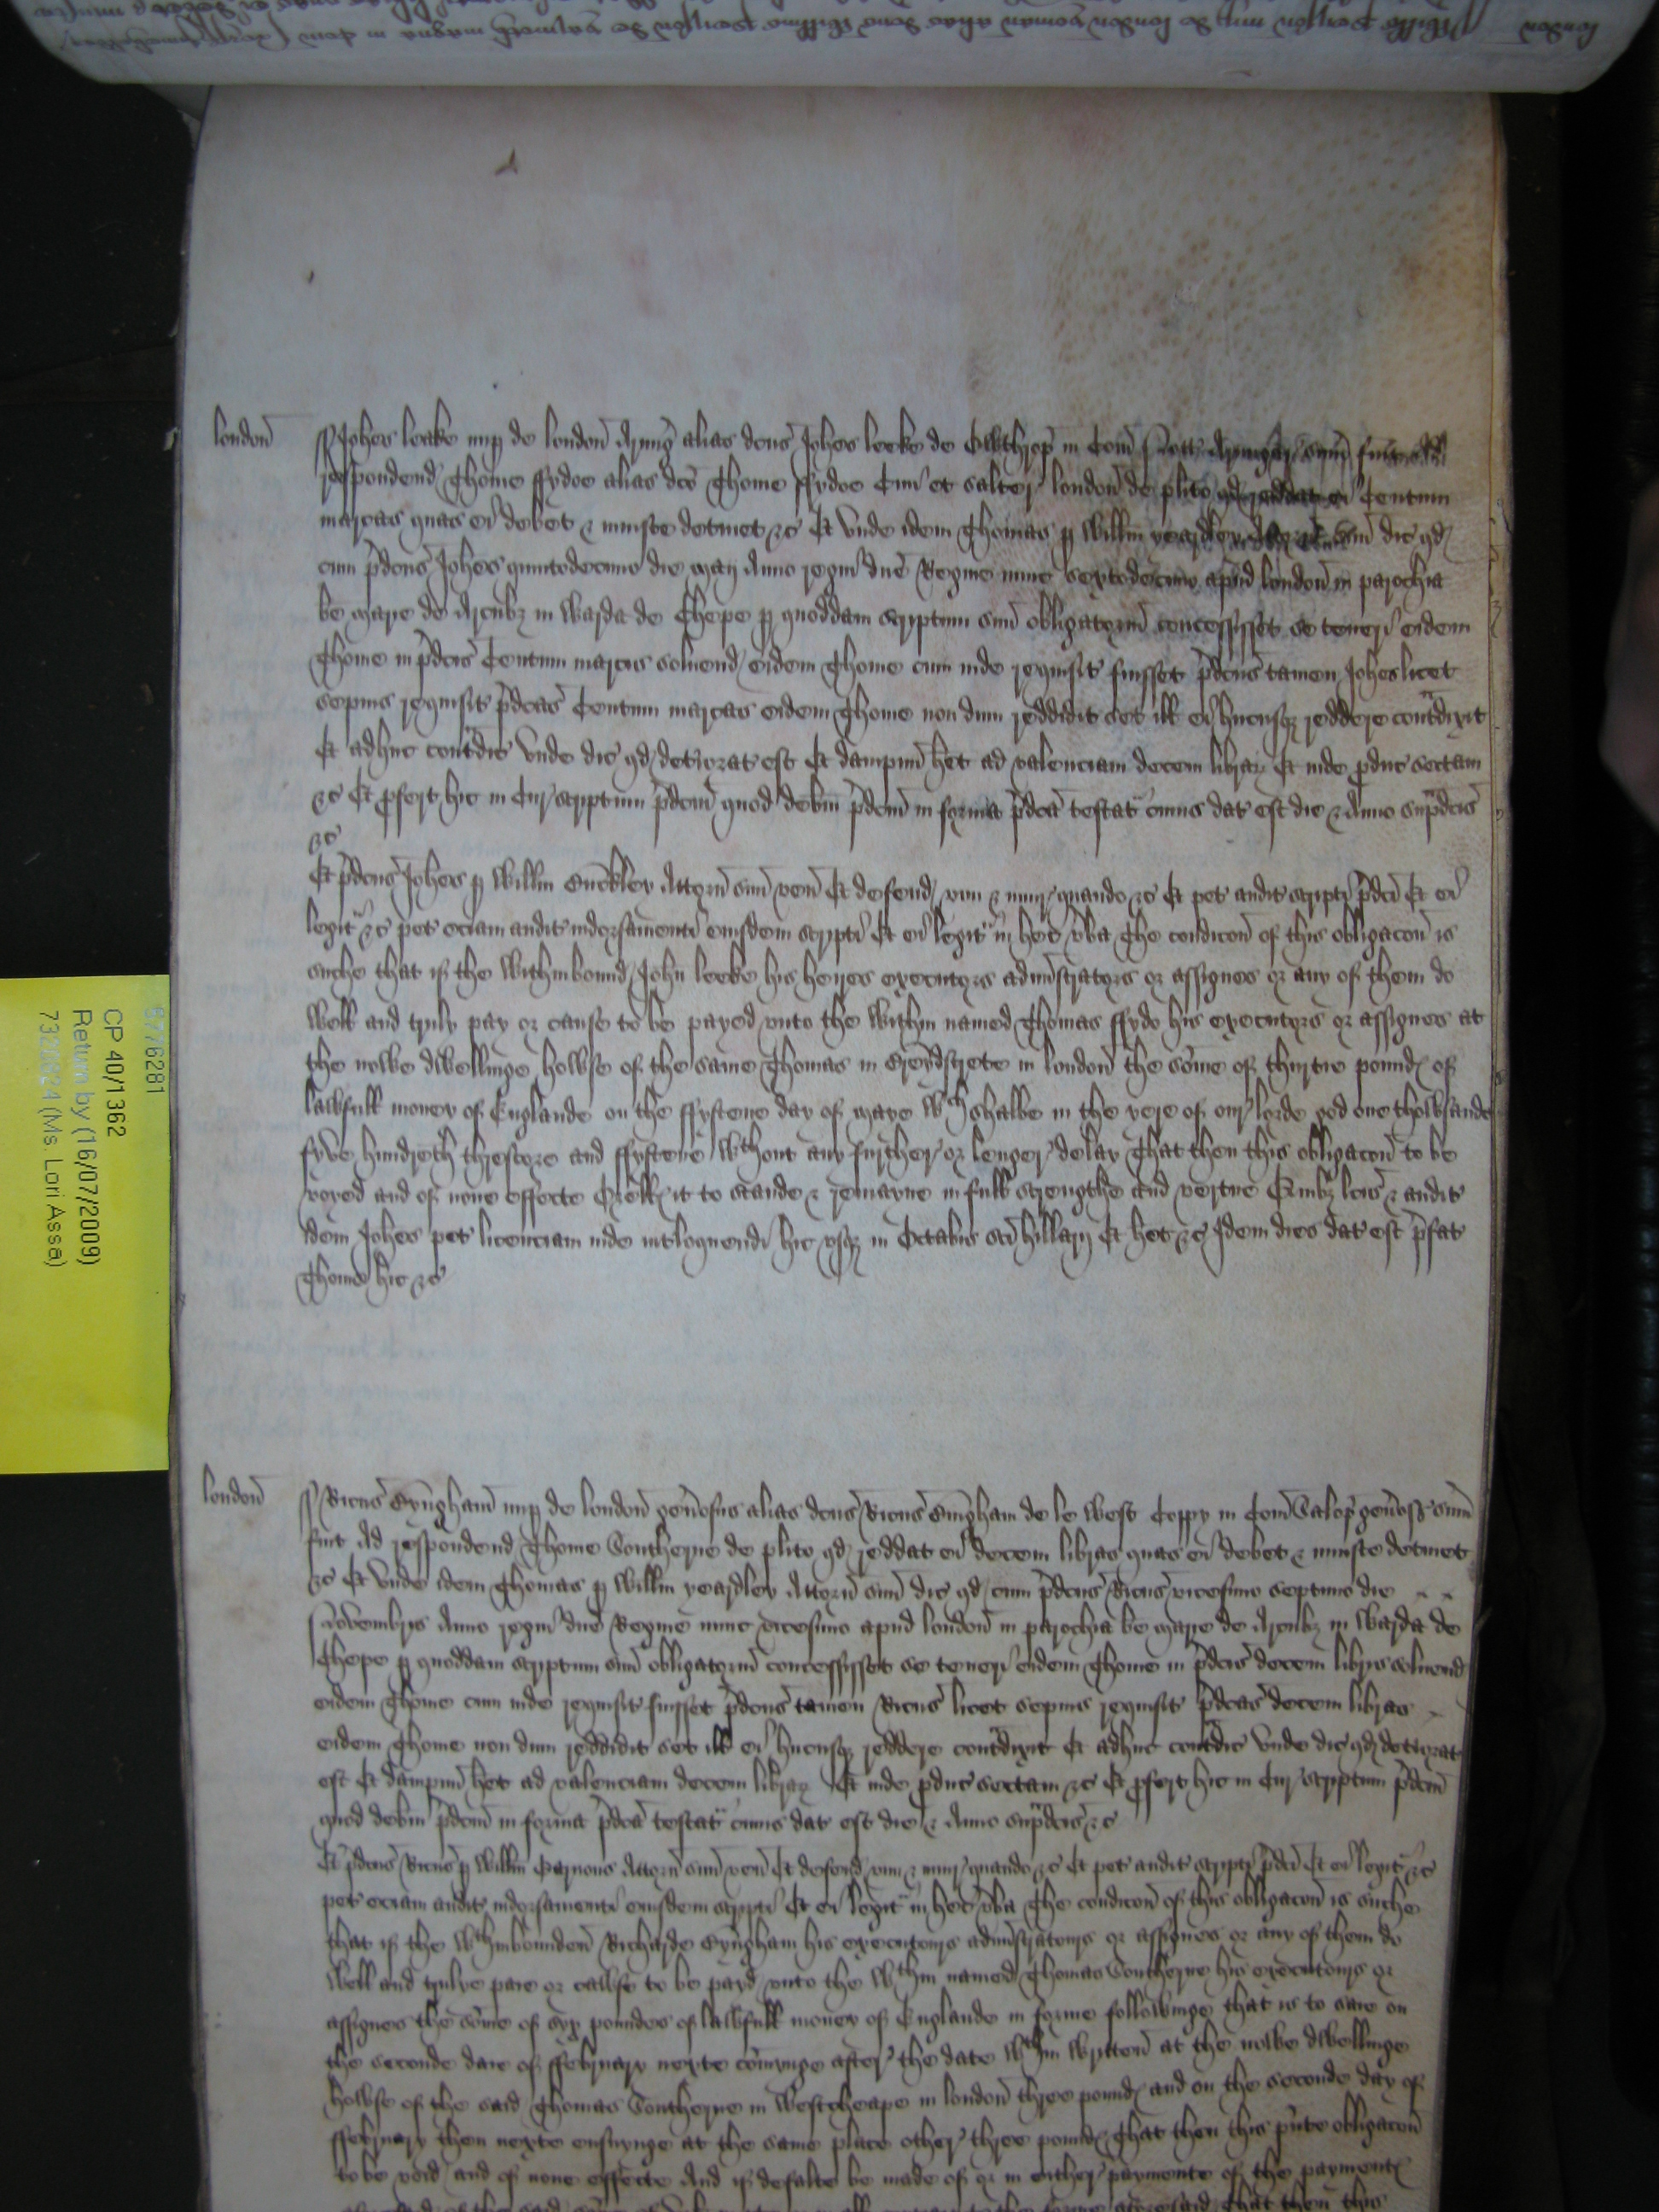 london̄ Joh̃es leeke nup de london̄ Armig̃ alias dc̃us Joh̃es leeke de Cwthrop̃ in Com̃ Nott Armiger sum̃ fuit ad
respondend Thome ffydoe alias dc̃o Thome ffydoe Civi et salter london̄ de plito qd reddat ei Centum
marcas quas ei debet & iniuste detinet &c Et vnde idem Thomas p Willm yeardley Attorn̄ suū dic̃ qd
cum p̃dcus Joh̃es quintodecimo die maij Anno regni dn̄e Regine nunc sextodecimo apud london̄ in parochia
be marie de Arcubȝ in warda de Chepe p quoddam scriptum suū obligatoriū concessisset se teneri eidem
Thome in p̃dcis Centum marcis soluend eidem Thome cum inde requisit fuisset p̃dcus tamen Joh̃es licet
sepius requisit p̃dcas Centum marcas eidem Thome non dum reddidit set ill ei hucusqȝ reddere contradixit
Et adhuc contradic̃ vnde dic̃ qd deteriorat est Et dampnū h̃et ad valenciam decem librarȝ Et inde p̃duc̃ sectam
&c Et p̃fert hic in Cur scriptum p̃dcm quod debm p̃dcm in forma p̃dca testat cuius dat est die & Anno sup̃dcis
&c
Et p̃dcus Joh̃es p Willm Attorn̄ suū ven̄ Et defend vim & iniur quando &c Et pet audit scripti p̃dci Et ei
legit &c pet eciam audit indorsamenti eiusdem scripti Et ei legit in hec ṽba The condicon̄ of this obligacon̄ is
suche that if the withinbound John leeke his heyres executors administrators or assignes or any of them do
well and truly pay or cause to be payed vnto the within named Thomas ffydo his executors or assignes at
the nowe dwellinge howse of the same Thomas in Bredstrete in london̄ the som̃e of thirtie pound of
lawfull money of Englande on the ffyftene day of maye wch shalbe in the yere of our lorde god one thowsande
fyve hundreth threscore and ffyftene wthout any further or lenger delay That then this obligacon̄ to be
voyed and of none effecte Or ell it to stande & remayne in full strengthe and vertue Quibȝ lcis & audit
idem Joh̃es pet licenciam inde int̃loquendi hic vsqȝ in Octabis sc̃i hillarij Et h̃et &c Idem dies dat est p̃fat
Thome hic &c
london̄ Ric̃us Eyngham̄ nup de london̄ gen̄osus alias dc̃us Ric̃us Eyngham de le West Coppy in Com̃ Salop̃ gen̄oss sum̃
fuit Ad respondend Thome Sontherne de plito qd reddat ei decem libras quas ei debet & iniuste detinet
&c Et vnde idem Thomas p Willm yeardley Attorn̄ suū dic̃ qd cum p̃dcus Ric̃us vicesimo septimo die
Novembris Anno regni dn̄e Regine nunc vicesimo apud london̄ in parochia be marie de Arcubȝ in warda de
Chepe p quoddam scriptum suū obligatoriū concessisset se teneri eidem Thome in p̃dcis decem libris soluend
eidem Thome cum inde requisit fuisset p̃dcus tamen Ric̃us licet sepius requisit p̃dcas decem libras
eidem Thome non dum reddidit set ill ei hucusqȝ reddere contradixit Et adhuc contradic̃ vnde dic̃ qd deteriorat
est Et dampnū h̃et ad valenciam decem librarȝ Et inde p̃duc̃ sectam &c Et p̃fert hic in Cur scriptum p̃dcm
quod debm p̃dcm in forma p̃dca testat cuius dat est die & Anno sup̃dcis &c
Et p̃dcus Ric̃us p Willm Attorn̄ suū ven̄ Et defend vim & iniur quando &c Et pet audit scripti p̃dci Et ei legit &c
pet eciam audit indorsamenti eiusdem scripti Et ei legit in hec ṽba The condicon̄ of this obligacon̄ is suche
that if the wthinbounden Richarde Eyngham his executours administratours or assignes or any of them do
well and trulye paie or cawse to be payd vnto the wthin named Thomas Sontherne his executours or
assignes the som̃e of syx poundes of lawfull money of Englande in forme followinge that is to saie on
the seconde daie of ffebruary nexte com̃ynge after the date wthin written at the nowe dwellinge
howse of the said Thomas Sontherne in Westcheape in london̄ three pound and on the seconde day of
ffebruary then nexte ensuynge at the same place other three pound That then this p̃nte obligacon̄
to be void and of none effecte And if defalte be made of or in either paymente of the payment
5776281
CP 40/1362
Return by (16/07/2009)
(Ms. Lori Assa)